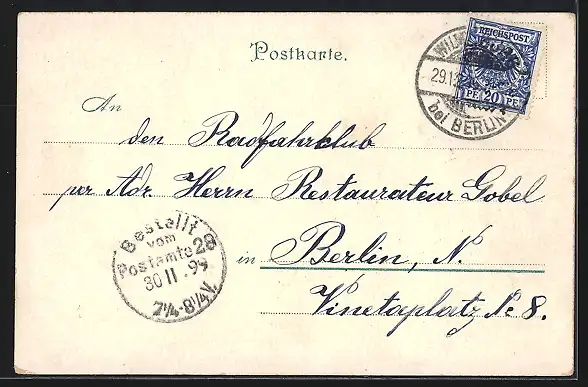 Postkarte.
REICHSPOST
PF 20 PF
29.1
bei BERLIN
An
den Radfahrklub
per Adr. Herrn Restaurateur Gobel
in Berlin, N.
Vinetaplatz № 8.
Bestellt
vom
Postamte 28
30 11 99
7¼-8¼V.